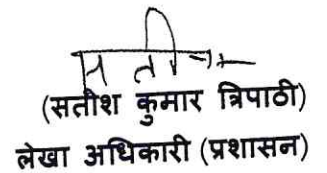 (सतीश कुमार त्रिपाठी)
लेखा अधिकारी (प्रशासन)